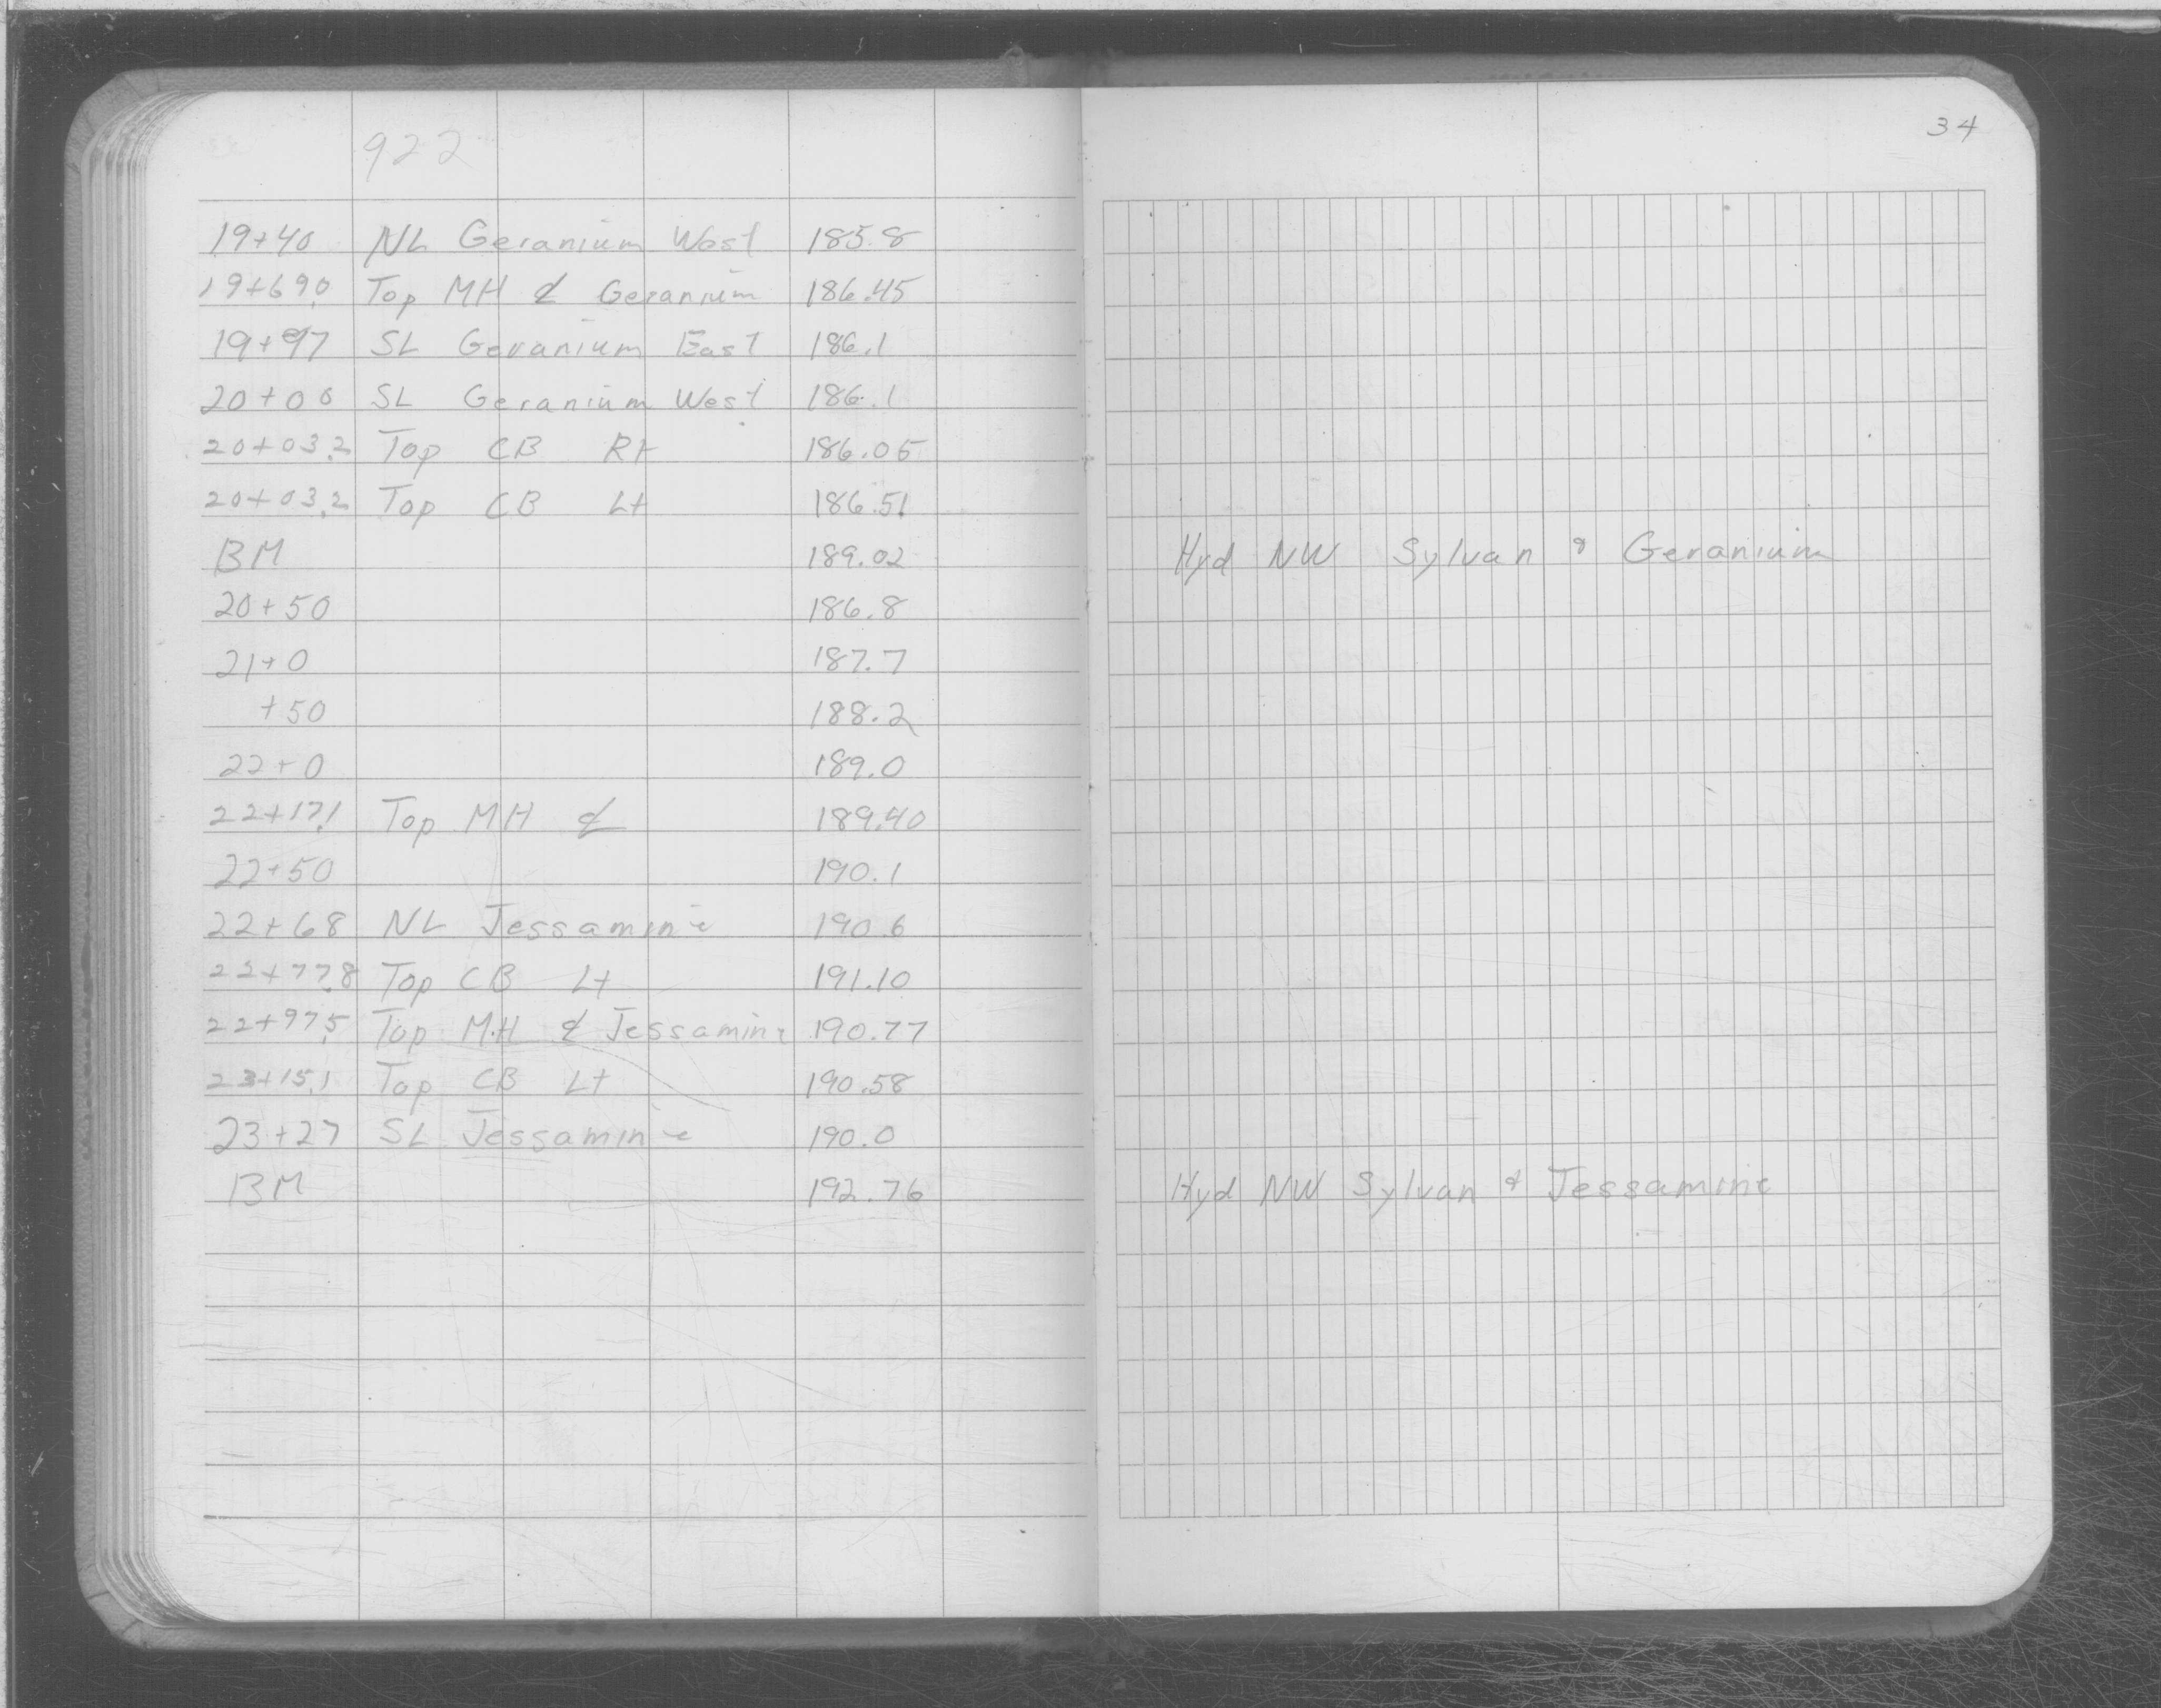 922
34
19+40 NL Geranium West 185.8
19+69.0 Top MH ℄ Geranium 186.45
19+97 SL Geranium East 186.1
20+00 SL Geranium West 186.1
20+03.2 Top CB Rt 186.05
20+03.2 Top CB Lt 186.51
BM 189.02 Hyd NW Sylvan & Geranium
20+50 186.8
21+0 187.7
+50 188.2
22+0 189.0
22+17.1 Top MH ℄ 189.40
22+50 190.1
22+68 NL Jessamine 190.6
22+77.8 Top CB Lt 191.10
22+97.5 Top M.H ℄ Jessamine 190.77
23+15.1 Top CB Lt 190.58
23+27 SL Jessamine 190.0
BM 192.76 Hyd NW Sylvan & Jessamine